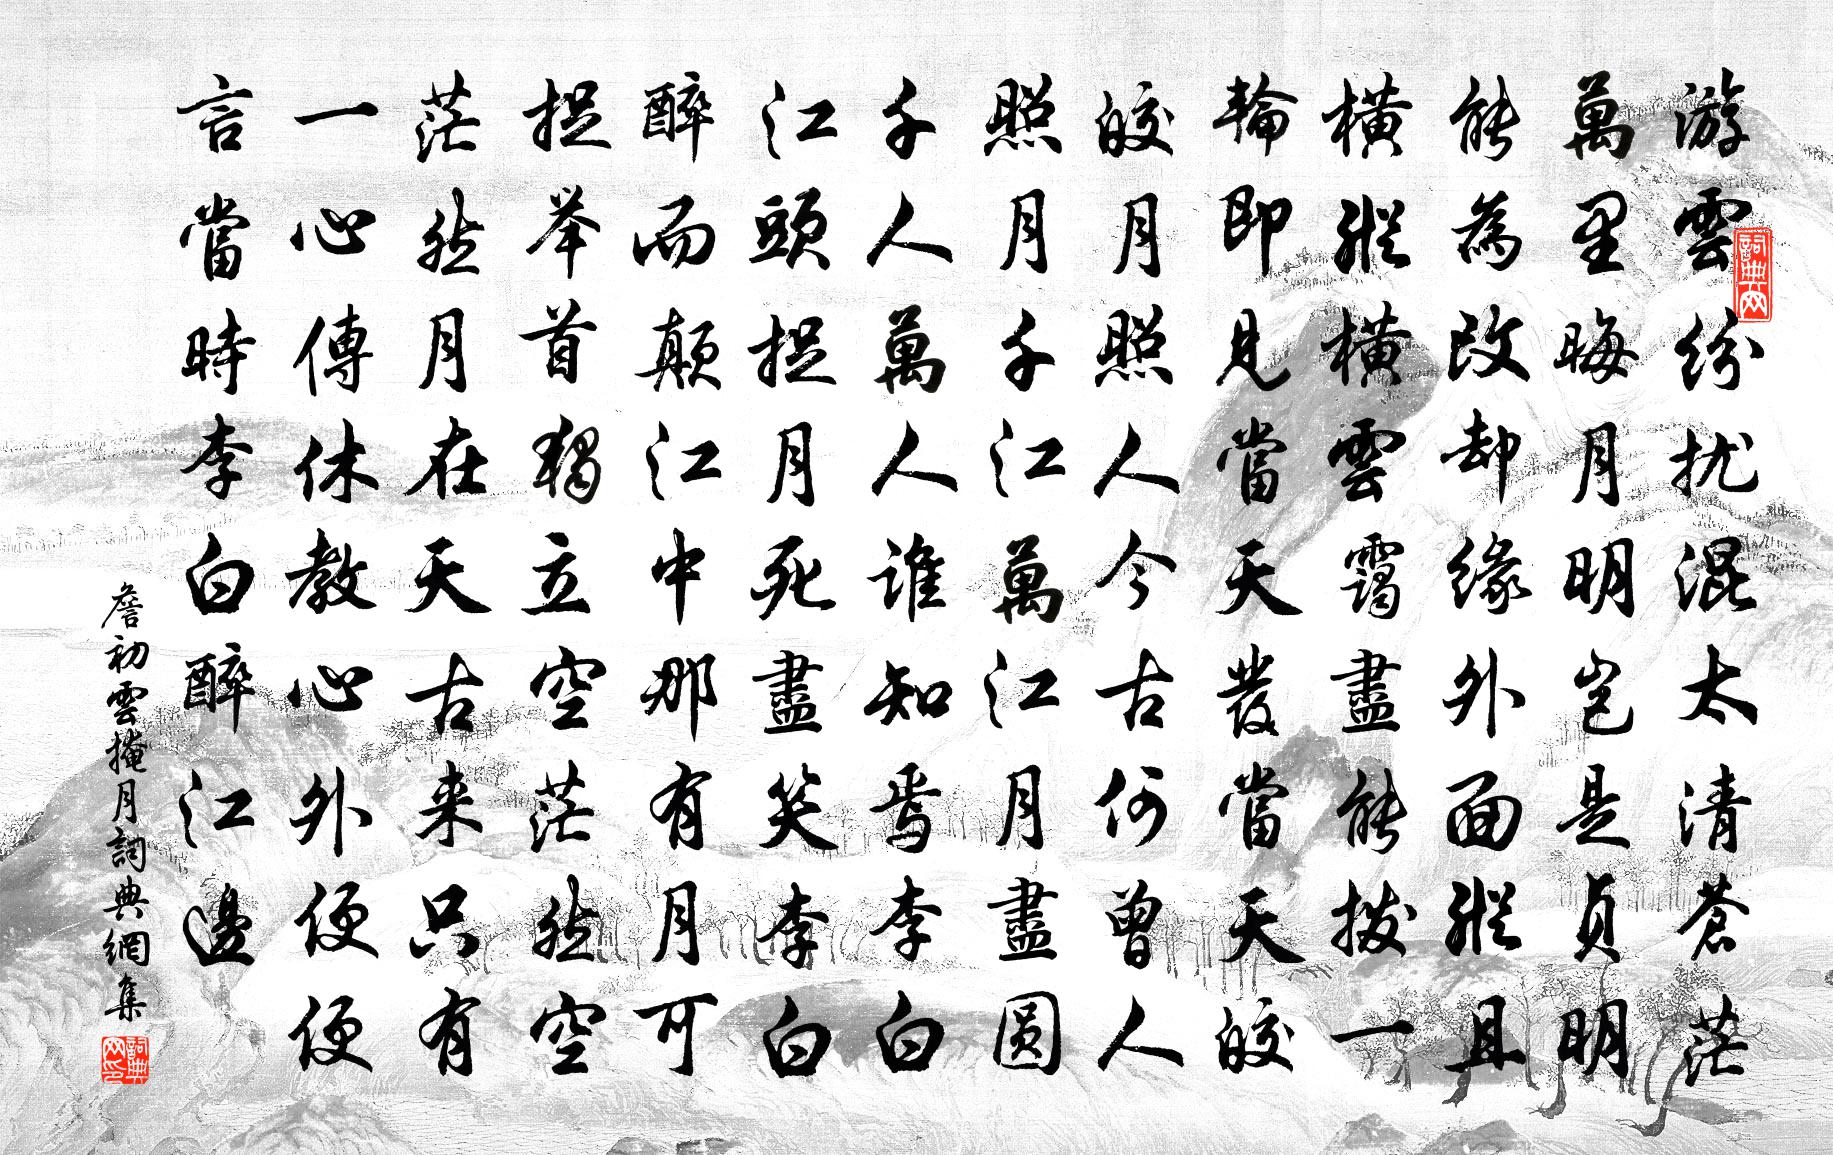 游雲紛扰混太清蒼茫
萬里晦月明岂是貞明
能為改却緣外面縱且
橫縱橫雲靄盡能拨一
輪即見當天發當天皎
皎月照人今古何曾人
照月千江萬江月盡圓
千人萬人誰知焉李白
江頭捉月死盡笑李白
醉而顛江中那有月可
捉举首獨立空茫然空
茫然月在天古来只有
一心傳休教心外便便
言當時李白醉江邊
詹初雲掩月詞典網集
詞典网
詞典网印